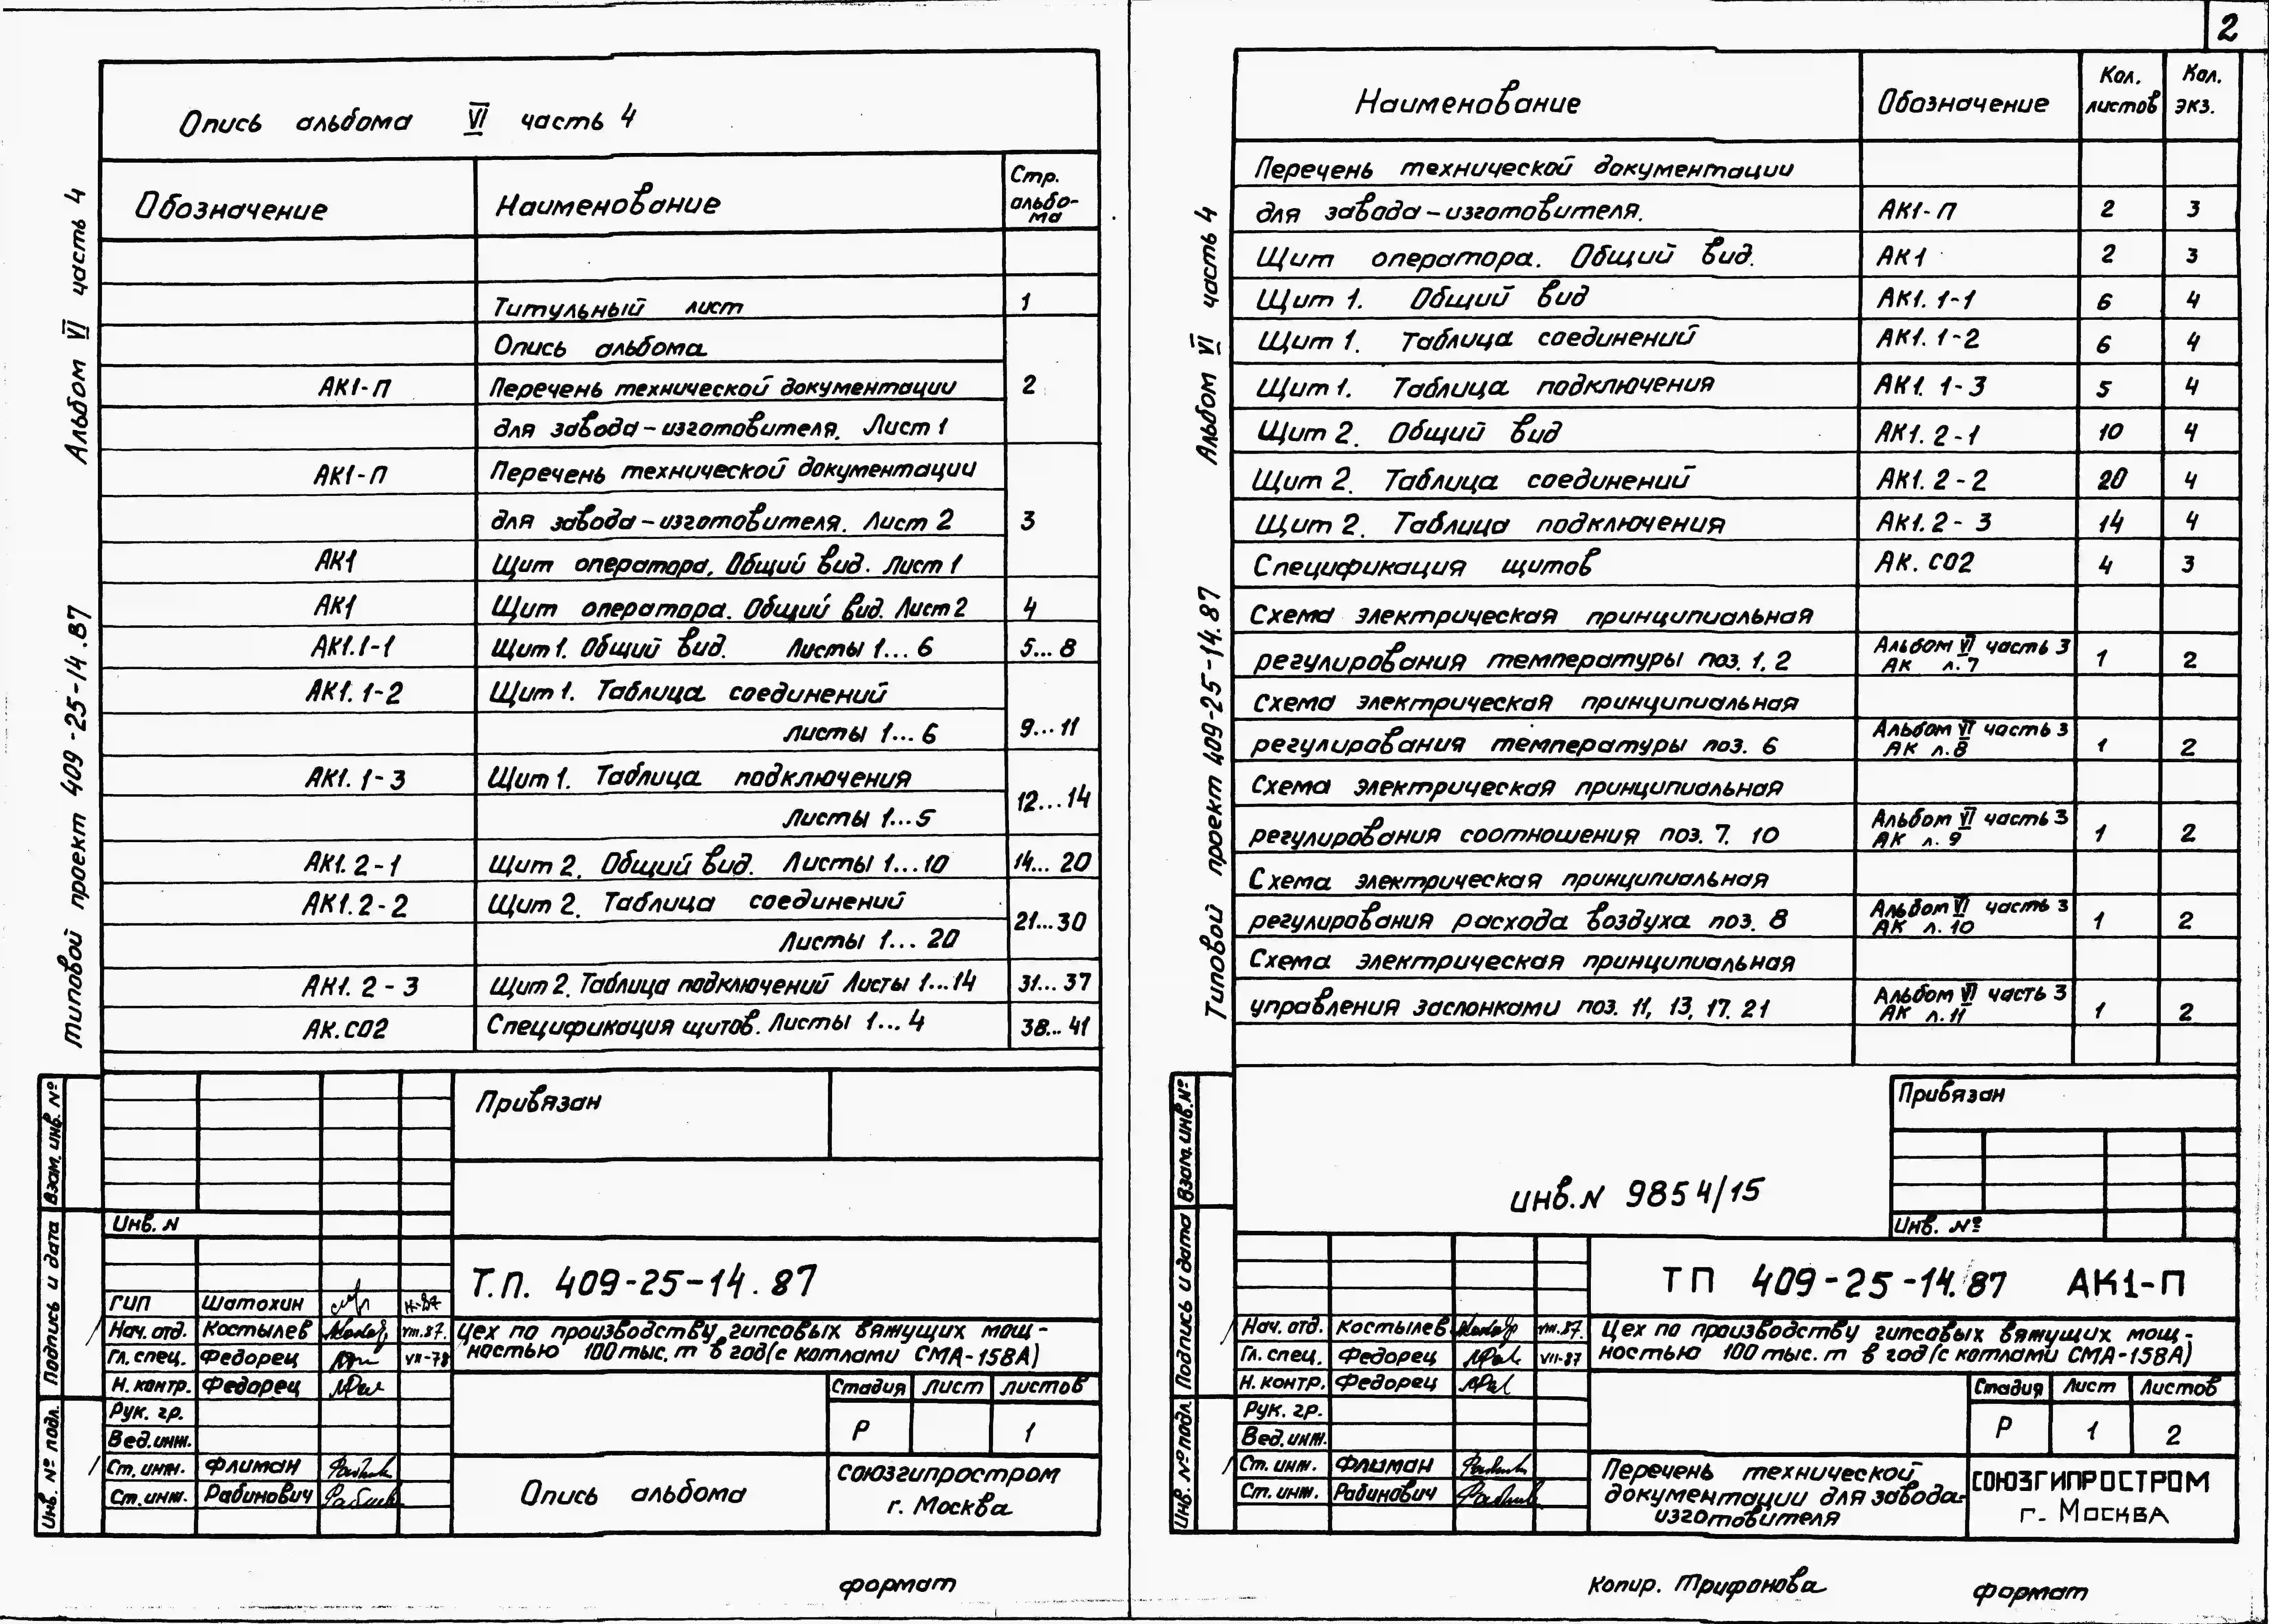 2
Опись альбома VI часть 4
Обозначение Наименование Стр. альбо-ма
Титульный лист 1
Опись альбома
АК1-П Перечень технической документации 2
для завода-изготовителя. Лист 1
АК1-П Перечень технической документации
для завода-изготовителя. Лист 2 3
АК1 Щит оператора. Общий вид. Лист 1
АК1 Щит оператора. Общий вид. Лист 2 4
АК1.1-1 Щит 1. Общий вид. Листы 1...6 5...8
АК1.1-2 Щит 1. Таблица соединений
листы 1...6 9...11
АК1.1-3 Щит 1. Таблица подключения
Листы 1...5 12...14
АК1.2-1 Щит 2. Общий вид. Листы 1...10 14...20
АК1.2-2 Щит 2. Таблица соединений
Листы 1...20 21...30
АК1.2-3 Щит 2. Таблица подключений Листы 1...14 31...37
АК.СО2 Спецификация щитов. Листы 1...4 38...41
Альбом VI часть 4
Типовой проект 409-25-14.87
Взам. инв. №
Подпись и дата
Инв. № подл.
Привязан
Инв. N
Т.П. 409-25-14.87
ГИП Шатохин
Нач. отд. Костылев VIII.87.
Гл. спец. Федорец VII-78
Н. контр. Федорец
Рук. гр.
Вед. инж.
Ст. инж. Флиман
Ст. инж. Рабинович
Цех по производству гипсовых вяжущих мощ-
ностью 100 тыс. т в год (с котлами СМА-158А)
Стадия Лист Листов
Р 1
Опись альбома
союзгипростром
г. Москва
формат
Наименование Обозначение Кол. листов Кол. экз.
Перечень технической документации
для завода-изготовителя. АК1-П 2 3
Щит оператора. Общий вид. АК1 2 3
Щит 1. Общий вид АК1.1-1 6 4
Щит 1. Таблица соединений АК1.1-2 6 4
Щит 1. Таблица подключения АК1.1-3 5 4
Щит 2. Общий вид АК1.2-1 10 4
Щит 2. Таблица соединений АК1.2-2 20 4
Щит 2. Таблица подключения АК1.2-3 14 4
Спецификация щитов АК.СО2 4 3
Схема электрическая принципиальная
регулирования температуры поз. 1, 2 Альбом VI часть 3 АК л.7 1 2
Схема электрическая принципиальная
регулирования температуры поз. 6 Альбом VI часть 3 АК л.8 1 2
Схема электрическая принципиальная
регулирования соотношения поз. 7, 10 Альбом VI часть 3 АК л.9 1 2
Схема электрическая принципиальная
регулирования расхода воздуха поз. 8 Альбом VI часть 3 АК л.10 1 2
Схема электрическая принципиальная
управления заслонками поз. 11, 13, 17, 21 Альбом VI часть 3 АК л.11 1 2
Альбом VI часть 4
Типовой проект 409-25-14.87
Взам. инв. №
Подпись и дата
Инв. № подл.
Привязан
инв. N 9854/15
Инв. №
ТП 409-25-14.87 АК1-П
Нач. отд. Костылев VIII.87.
Гл. спец. Федорец VII-87
Н. контр. Федорец
Рук. гр.
Вед. инж.
Ст. инж. Флиман
Ст. инж. Рабинович
Цех по производству гипсовых вяжущих мощ-
ностью 100 тыс. т в год (с котлами СМА-158А)
Стадия Лист Листов
Р 1 2
Перечень технической
документации для завода-
изготовителя
СОЮЗГИПРОСТРОМ
г. Москва
Копир. Трифонова
формат